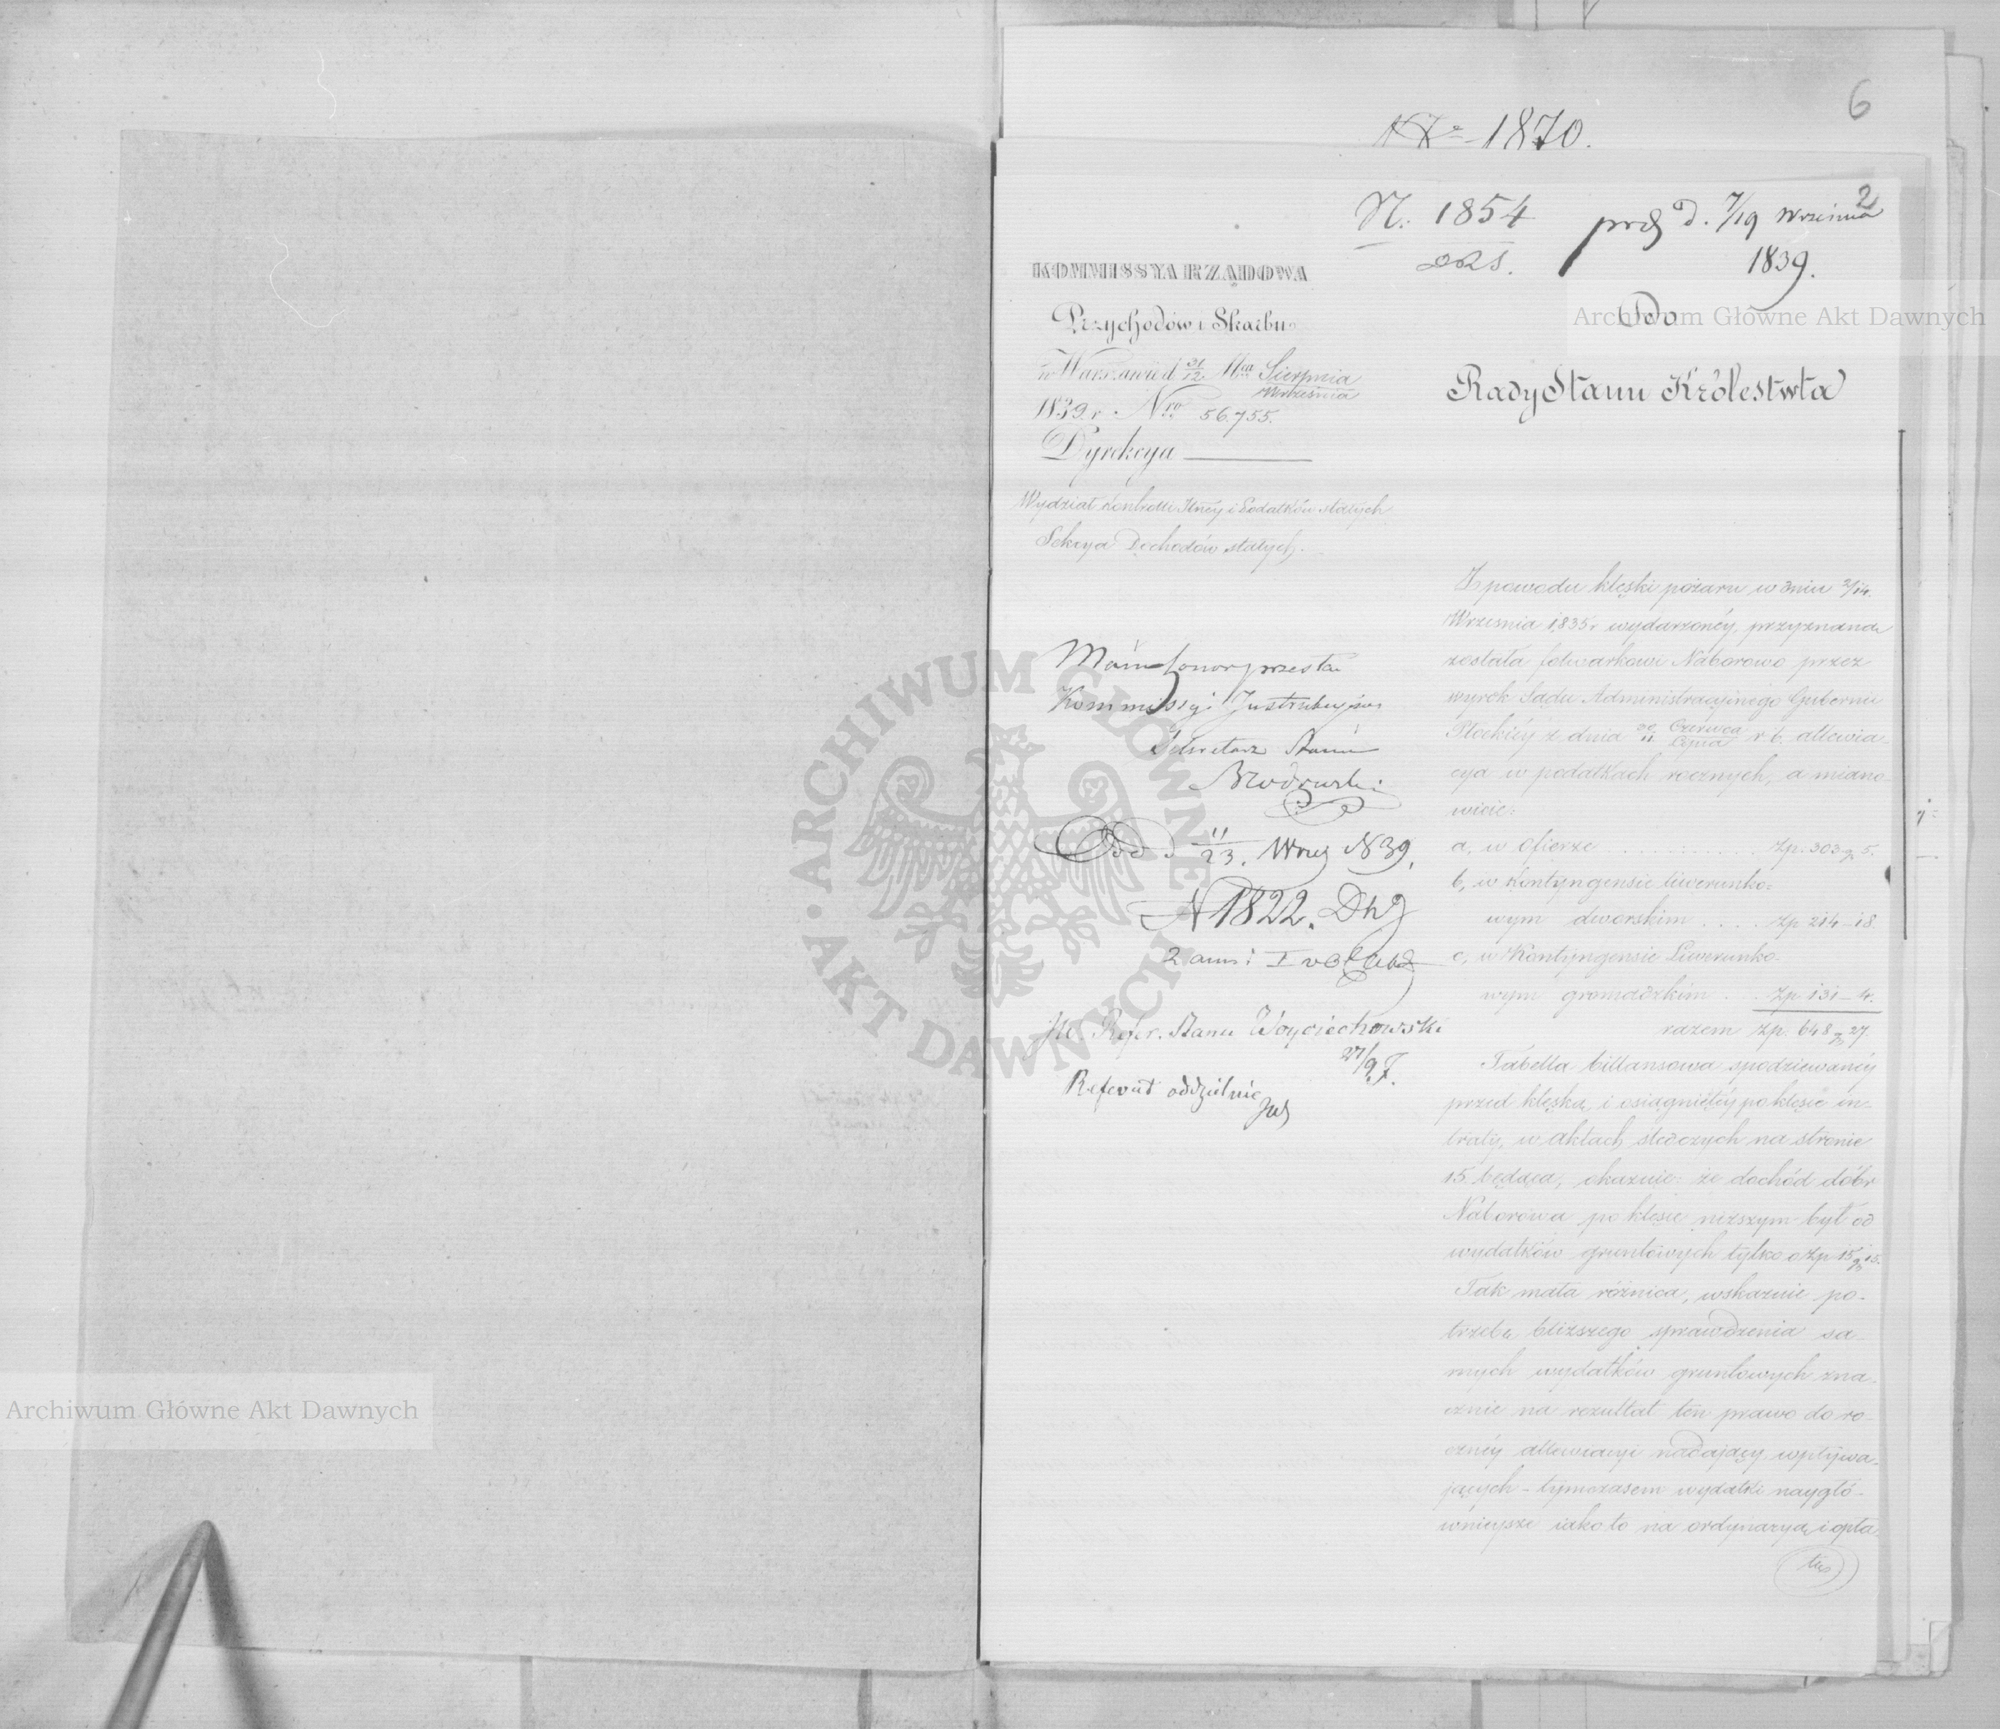 6
1870.
N. 1854
prez d. 7/19 Września
2
1839.
KOMMISSYA RZĄDOWA
Przychodów i Skarbu
w Warszawie d 31/12 Mca Sierpnia
Września
1839 r. Nro 56.755.
Dyrekcya
Wydział Kontrolli Ilnéy i Podatków stałych
Sekcya Dochodów stałych.
Do
Rady Stanu Królestwa
Z powodu klęski pożaru w dniu 2/14.
Września 1835 r wydarzonéy, przyznana
została folwarkowi Naborowo przez
wyrok Sądu Administracyinego Gubernii
Płockiéy z dnia 29/11 Czerwca/Lipca r b. allewia-
cya w podatkach rocznych, a miano-
wicie:
a, w Ofierze . . . . . . . Zp. 303 g. 5.
b, w Kontyngensie liwerunko-
wym dworskim . . . . Zp 214 – 18.
c, w Kontyngensie Liwerunko-
wym gromadzkim . . Zp. 131 – 4.
razem Zp. 648 g 27.
Tabella billansowa spodziewanéy
przed klęską i osiągniętéy po klęsce in-
traty, w aktach śledczych na stronie
15 będąca, okazuie: że dochód dóbr
Naborowa po klęsce niższym był od
wydatków gruntowych tylko o Zp 15 g 15.
Tak mała różnica, wskazuie po-
trzebę bliższego sprawdzenia sa-
mych wydatków gruntowych zna-
cznie na rezultat ten prawo do ro-
cznéy allewiacyi nadaiący wpływa-
jących – tymczasem wydatki naygłó-
wnieysze iako to na ordynaryą i opła
Kommissyi Instrukcyiney
Sekretarz Stanu
Brodowski
11/23. Wrześ 1839.
N 1822.
JW. Refer. Stanu Woyciechowski
27/9.
Referat oddzielnie
ARCHIWUM GŁÓWNE AKT DAWNYCH
Archiwum Główne Akt Dawnych
Archiwum Główne Akt Dawnych